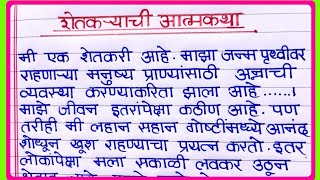 शेतकऱ्याची आत्मकथा
मी एक शेतकरी आहे. माझा जन्म पृथ्वीवर
राहणाऱ्या मनुष्य प्राण्यांसाठी अन्नाची
व्यवस्था करण्याकरिता झाला आहे ......।
माझे जीवन इतरांपेक्षा कठीण आहे. पण
तरीही मी लहान सहान गोष्टींमध्ये आनंद
शोधून खूश राहण्याचा प्रयत्न करतो. इतर
लोकांपेक्षा मला सकाळी लवकर उठून